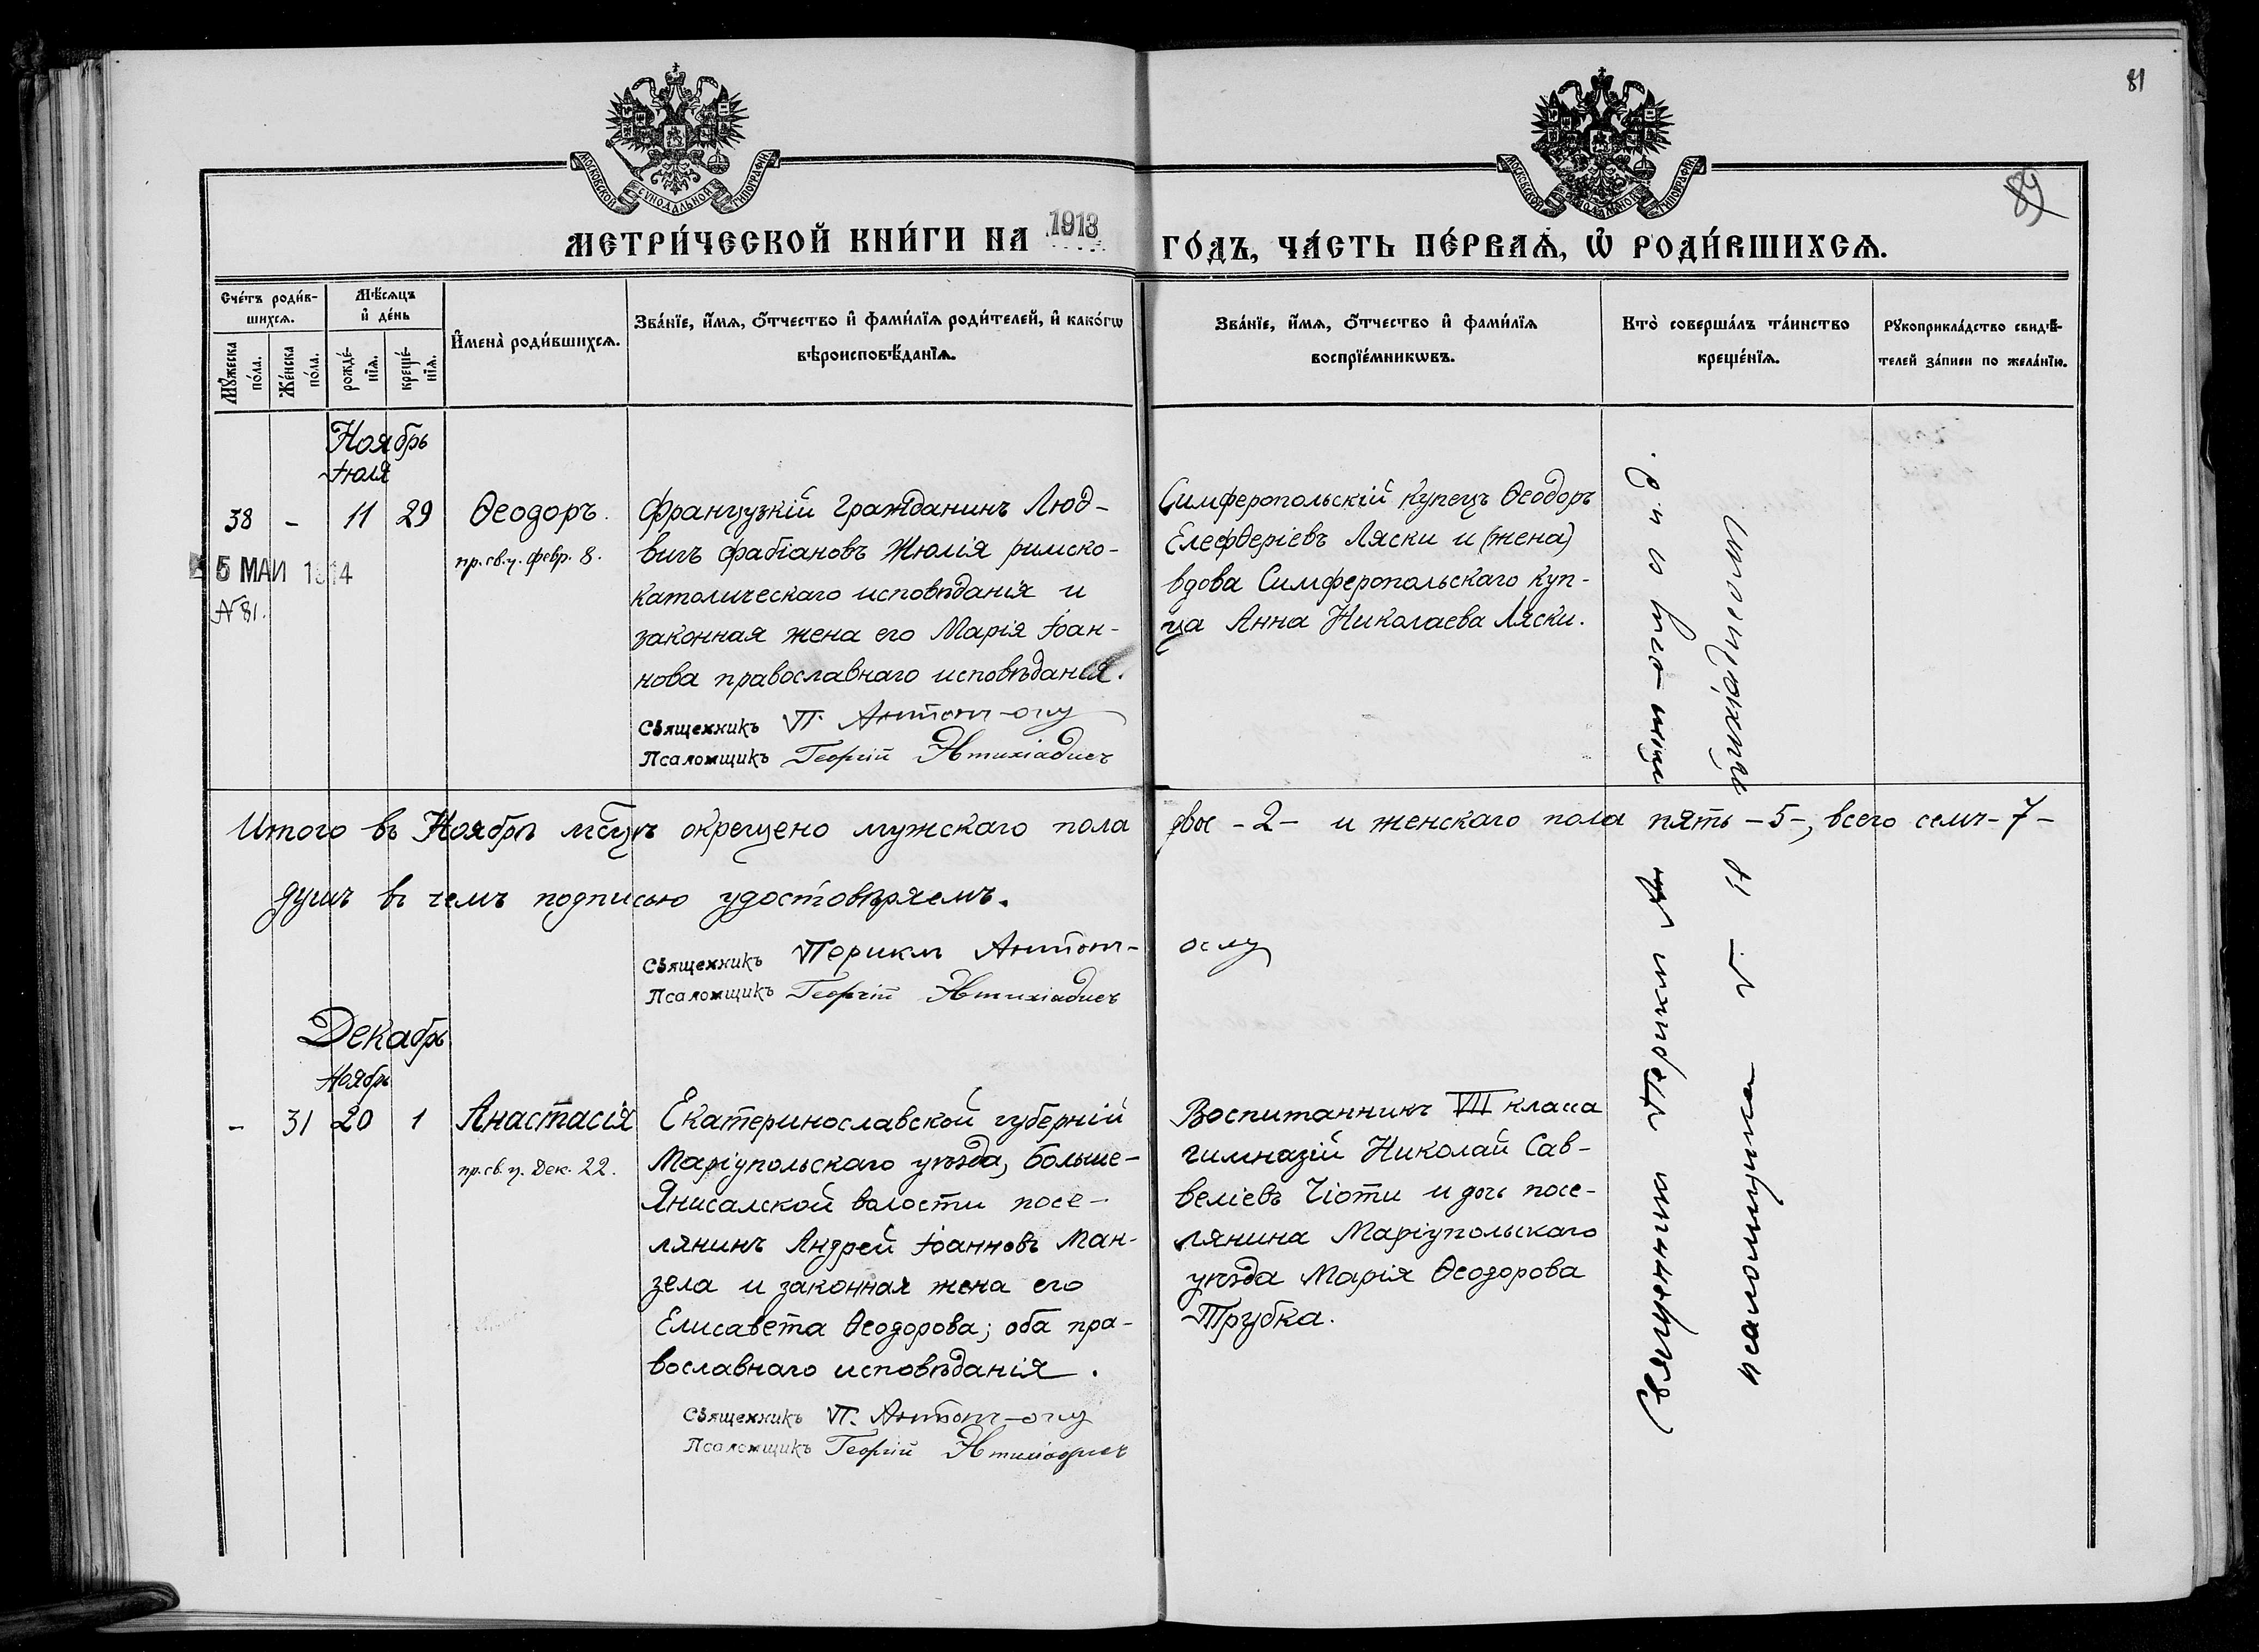 81
89
МОСКОВСКОЙ СѴНОДАЛЬНОЙ ТИПОГРАФІИ
МОСКОВСКОЙ СѴНОДАЛЬНОЙ ТИПОГРАФІИ
МЕТРИ́ЧЕСКОЙ КНИ́ГИ НА 1913 ГО́ДЪ, ЧА́СТЬ ПЕ́РВАѦ, Ѡ҆ РОДИ́ВШИХСѦ.
Сче́тъ роди́в-
шихсѧ.
Мѣ́сѧцъ
и҆ де́нь
Мꙋ́жеска
по́ла.
Же́нска
по́ла.
рожде́-
нїѧ.
креще́-
нїѧ.
И҆мена̀ роди́вшихсѧ.
Зва́нїе, и҆́мѧ, ѻ҆́тчество и҆ фами́лїѧ роди́телей, и҆ како́гѡ
вѣроисповѣ́данїѧ.
Зва́нїе, и҆́мѧ, ѻ҆́тчество и҆ фами́лїѧ
воспрїе́мникѡвъ.
Кто̀ соверша́лъ та́инство
креще́нїѧ.
Рꙋкоприкла́дство свидѣ́-
телей за́писи по жела́нїю.
Ноябрь
Іюля
38 - 11 29 Ѳеодоръ.
пр. св. ц. февр. 8.
5 МАИ 1914
№ 81.
Французкій Гражданинъ Люд-
вигъ Фабіановъ Жюлія римско-
католическаго исповѣданія и
законная жена его Марія Іоан-
нова православнаго исповѣданія.
Священникъ П. Антон-оглу
Псаломщикъ Георгій Эвтихіадисъ
Симферопольскій купецъ Ѳеодоръ
Елефѳеріевъ Ляски и (жена)
вдова Симферопольскаго куп-
ца Анна Николаева Ляски.
Итого въ Ноябрѣ мѣсяцѣ окрещено мужскаго пола двое - 2 - и женскаго пола пять - 5 -, всего семь - 7 -
душъ въ чемъ подписью удостовѣряемъ.
Священникъ Периклъ Антон-оглу
Псаломщикъ Георгій Эвтихіадисъ
Декабрь
Ноябрь
- 31 20 1 Анастасія
пр. св. ц. Дек. 22.
Екатеринославской губерній
Маріупольскаго уѣзда, Больше-
Янисалской волости посе-
лянинъ Андрей Іоанновъ Ман-
зела и законная жена его
Елисавета Ѳеодорова; оба пра-
вославнаго исповѣданія.
Священникъ П. Антон-оглу
Псаломщикъ Георгій Эвтихіадисъ
Воспитанникъ VII класса
гимназій Николай Сав-
веліевъ Чіоти и дочь посе-
лянина Маріупольскаго
уѣзда Марія Ѳеодорова
Трубка.
Священникъ Периклъ Антон-оглу
псаломщикъ